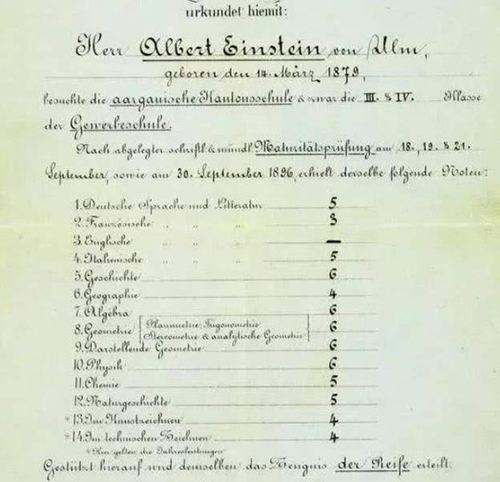 urkundet hiemit:
Herr Albert Einstein von Ulm,
geboren den 14. März 1879,
besuchte die aargauische Kantonsschule & zwar die III. & IV. Klasse
der Gewerbeschule.
Nach abgelegter schriftl. & mündl. Maturitätsprüfung am 18., 19. & 21.
September, sowie am 30. September 1896, erhielt derselbe folgende Noten:
1. Deutsche Sprache und Litteratur 5
2. Französische " " " 3
3. Englische " " " —
4. Italienische " " " 5
5. Geschichte 6
6. Geographie 4
7. Algebra 6
8. Geometrie [Planimetrie, Trigonometrie Stereometrie & analytische Geometrie] 6
9. Darstellende Geometrie 6
10. Physik 6
11. Chemie 5
12. Naturgeschichte 5
*13. Im Kunstzeichnen 4
*14. Im technischen Zeichnen 4
* Hier gelten die Jahresleistungen.
Gestützt hierauf wird demselben das Zeugnis der Reife erteilt.